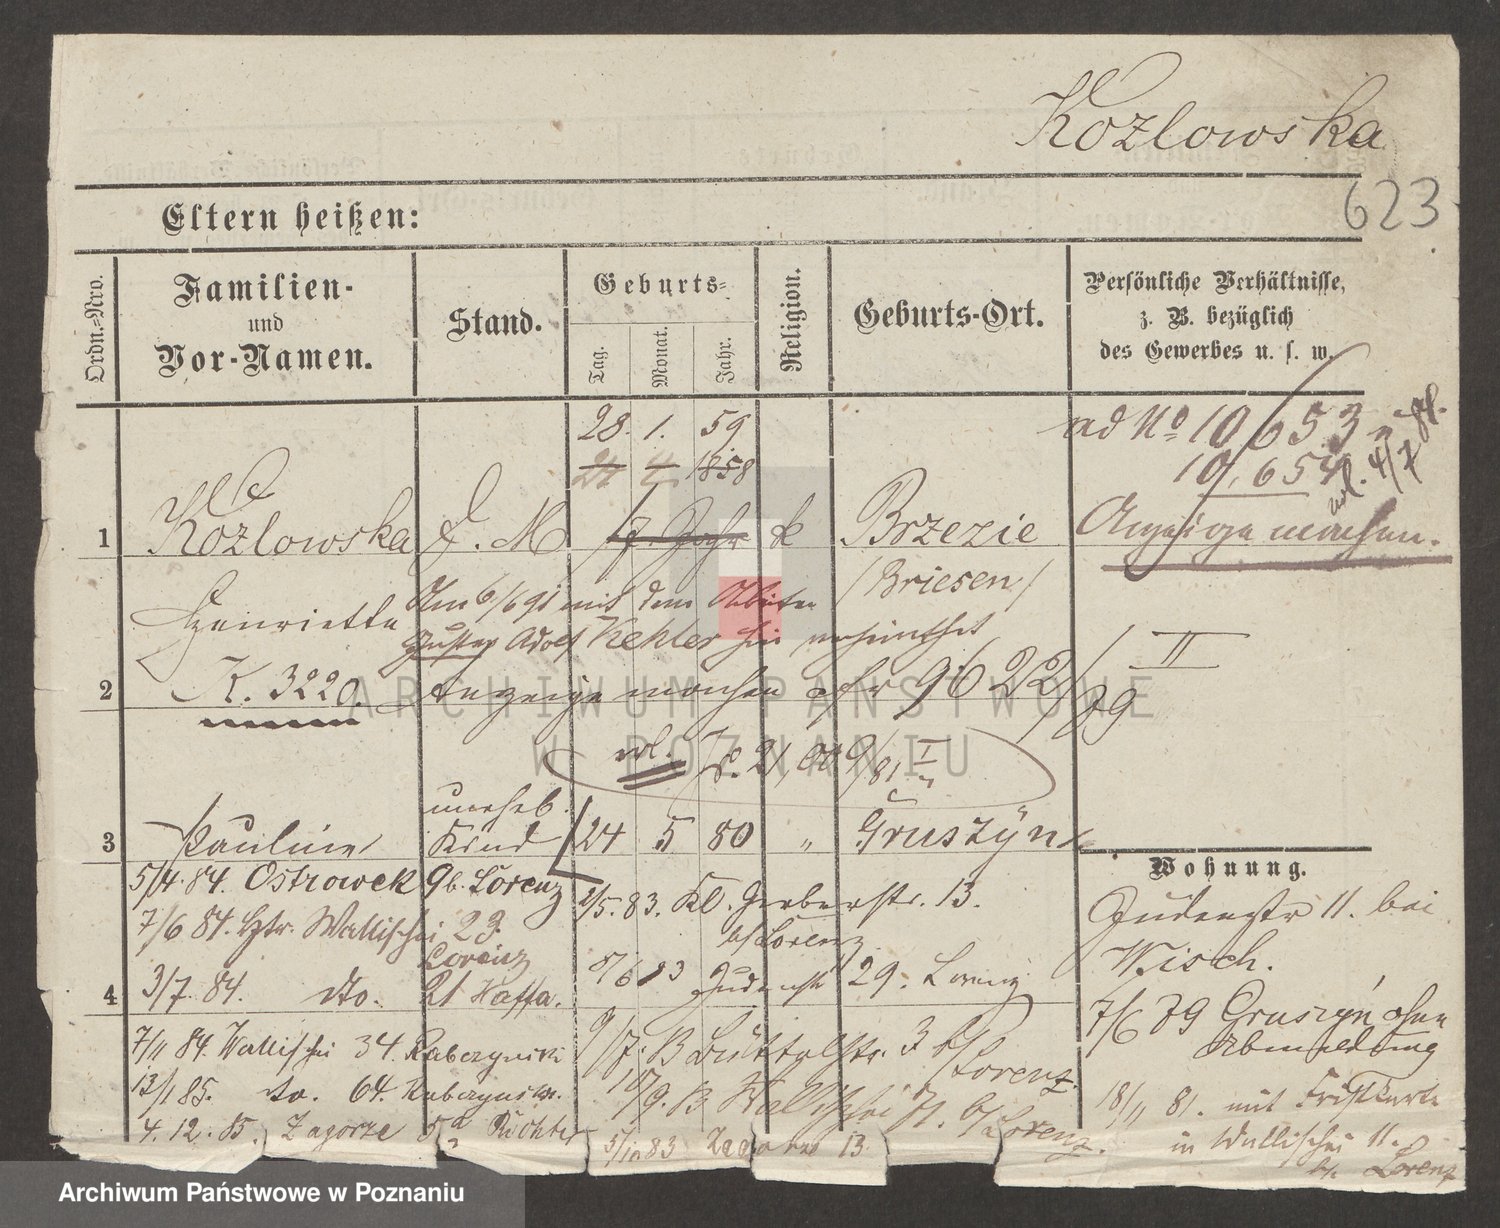 Kozlowska
623
Eltern heißen:
Ordn.-Nro.
Familien-
und
Vor-Namen.
Stand.
Geburts-
Tag.
Monat.
Jahr.
Religion.
Geburts-Ort.
Persönliche Verhältnisse,
z. B. bezüglich
des Gewerbes u. s. w.
28. 1. 59
24 4 1858
ad No 10653
10,654
1 Kozlowska d. M k Brzezie
Anzeige machen.
Henriette
/Briesen/
Am 6/6 91 mit dem Arbeiter
Gustav Adolf Kehler verheirathet
II
2 K. 3220. Anzeige machen 9622/79
unehel.
3 Pauline Kind 24 5 80 " Gruszyn
Wohnung.
5/4. 84. Ostrowek 9 b. Lorenz
2/5. 83. Kl. Gerberstr. 13.
b/Lorenz
Judenstr 11. bei
Wisch.
7/6 84. Htr. Wallischei 23.
Lorenz
4 3/7. 84. dto. 21 Haffa.
8/6 83 Judenstr 29. Lorenz
7/6 79 Gruszyn ohne
Abmeldung
7/11 84. Wallischei 34. Rabczynski
9/7. 83 Büttelstr. 3 b/
Lorenz
13/1 85. do. 64. Rabczynski.
10/9. 83 Wallischei 71. b/Lorenz.
18/11 81. mit Fristkarte
in Wallischei 11.
b/ Lorenz
4. 12. 85. Zagorze 5a Richter
5/10 83 Zagorze 13.
ARCHIWUM PAŃSTWOWE
W POZNANIU
Archiwum Państwowe w Poznaniu